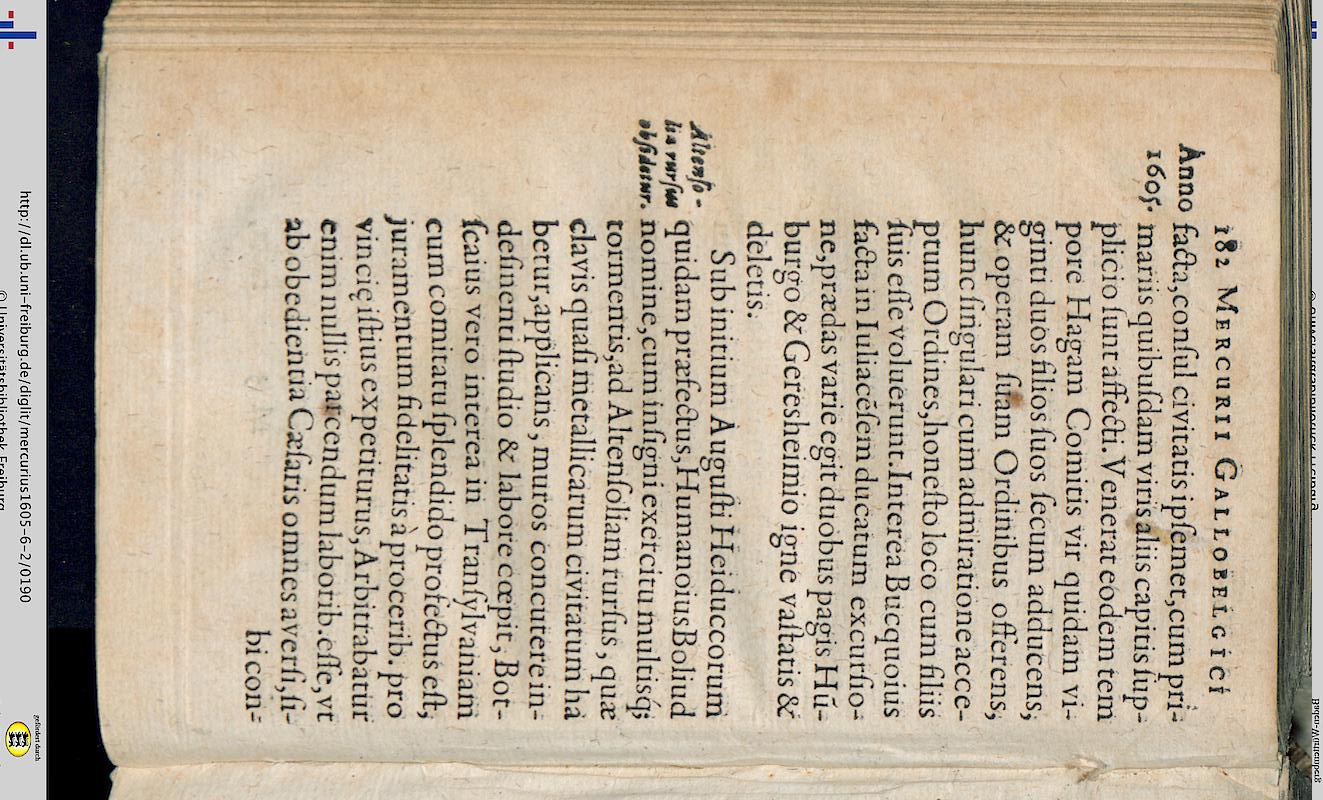 182 MERCURII GALLOBELGICI
Anno
1605.
facta, conſul civitatis ipſemet, cum pri-
mariis quibuſdam viris aliis capitis ſup-
plicio ſunt affecti. Venerat eodem tem
pore Hagam Comitis vir quidam vi-
ginti duos filios ſuos ſecum adducens,
& operam ſuam Ordinibus offerens;
hunc ſingulari cum admiratione acce-
ptum Ordines, honeſto loco cum filiis
ſuis eſſe voluerunt. Interea Bucquoius
facta in Iuliacēſem ducatum excurſio-
ne, prædas varie egit duobus pagis Hū-
burgo & Geresheimio igne vaſtatis &
deletis.
Sub initium Auguſti Heiduccorum
Altenſo-
lia rurſus
obſidetur.
quidam præfectus, Humanoius Boliud
nomine, cum inſigni exercitu multisq́;
tormentis, ad Altenſoliam rurſus, quæ
clavis quaſi metallicarum civitatum ha
betur, applicans, muros concutere in-
deſinenti ſtudio & labore cœpit, Bot-
ſcaius vero interea in Tranſylvahiam
cum comitatu ſplendido profectus eſt,
juramentum fidelitatis à procerib. pro
vincię iſtius expetiturus, Arbitrabatur
enim nullis parcendum laborib. eſſe, vt
ab obedientia Cæſaris omnes averſi, ſi-
bi con-
http://dl.ub.uni-freiburg.de/diglit/mercurius1605-6-2/0190
© Universitätsbibliothek Freiburg
gefördert durch